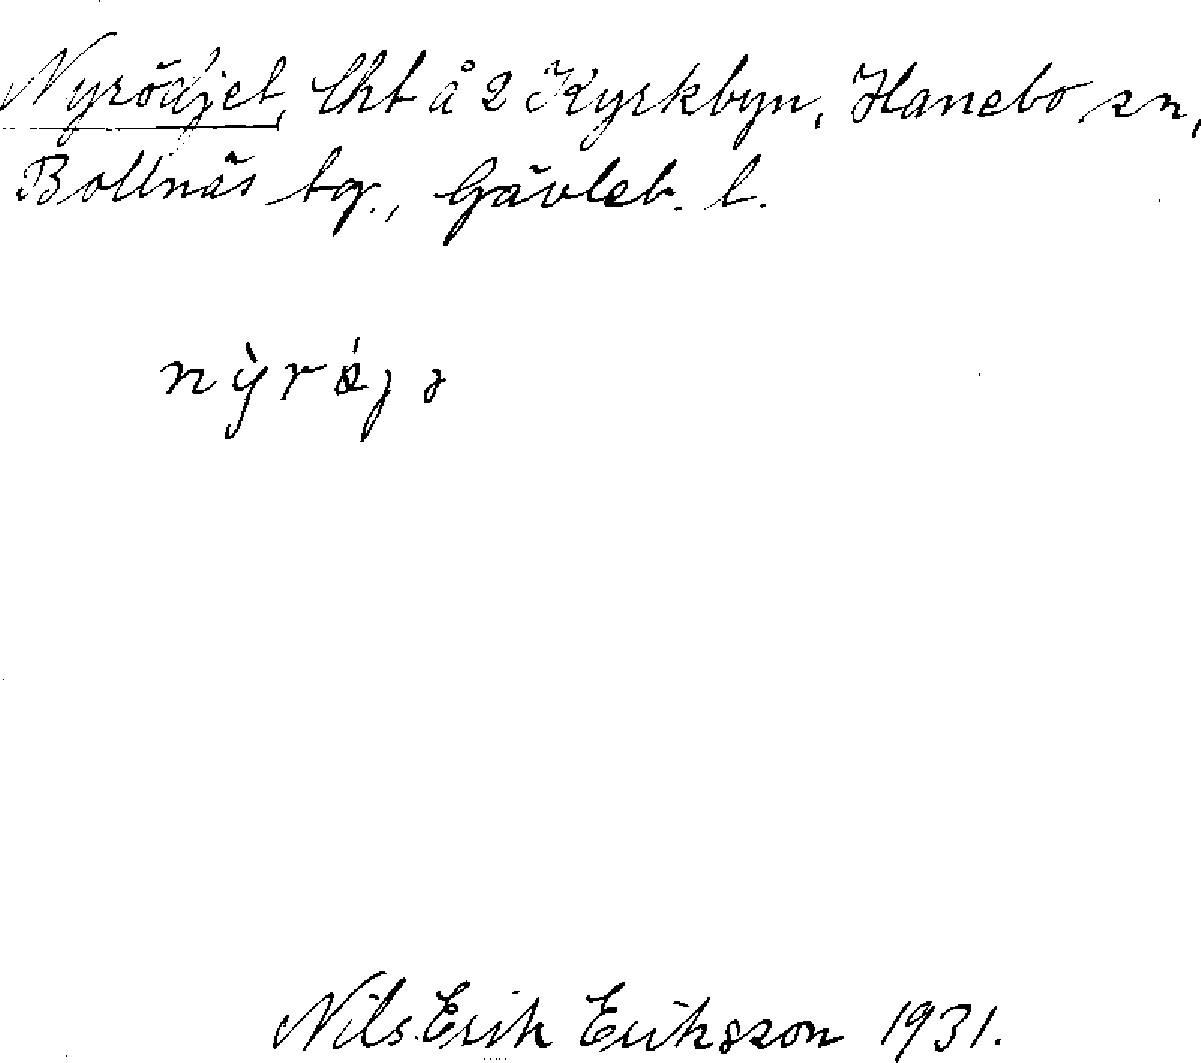 Nyrödjet, lht å 2 Kyrkbyn, Hanebo sn,
Bollnäs tg., Gävleb. l.
Nils Erik Eriksson 1931.